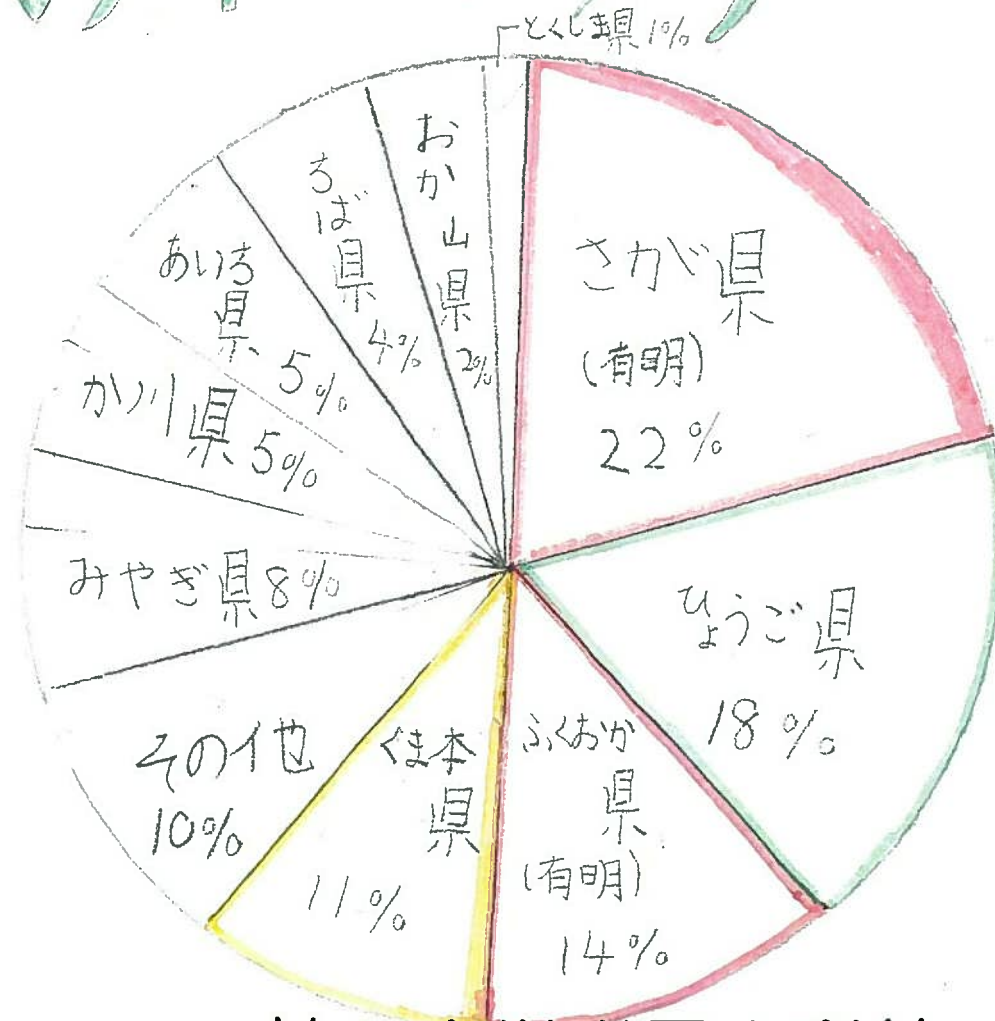 とくしま県 1%
さがけん県
(有明)
22%
ひょうご県
18%
ふくおか
県
(有明)
14%
くま本
県
11%
その他
10%
みやぎ県 8%
か川県 5%
あいち
県
5%
ちば県
4%
おか山県
2%